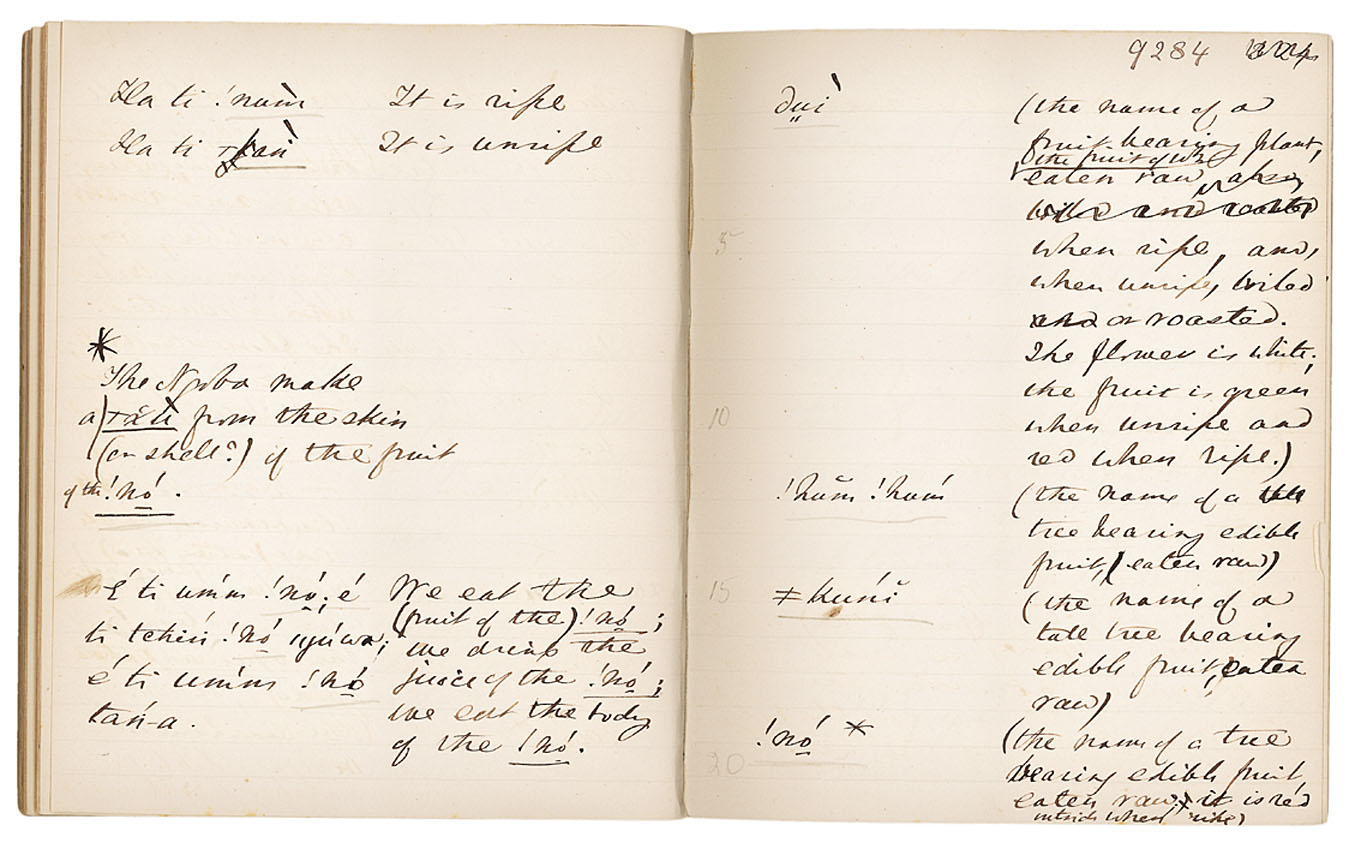 Ha ti !nuṁ̀ It is ripe
Ha ti It is unripe
*
The Ngoba make
a from the skin
(or shell?) of the fruit
of the !nó.
É ti úmm !nó; é We eat the
(fruit of the) !nó;
ti tchíń !nó we drink the
é ti úmm !nó juice of the !nó;
tań-a. we eat the body
of the !nó.
9284
(the name of a
fruit-bearing plant,
(the fruit of wh.
eaten raw, also
boiled and roasted
5 when ripe, and,
when unripe, boiled
and or roasted.
The flower is white;
the fruit is green
10 when unripe and
red when ripe.)
!hŭm !hum (the name of a tall
tree bearing edible
fruit, (eaten raw)
15 ≠kúńi (the name of a
tall tree bearing
edible fruit, eaten
raw)
!nó * (the name of a tree
20 bearing edible fruit,
eaten raw; it is red
outside when ripe)